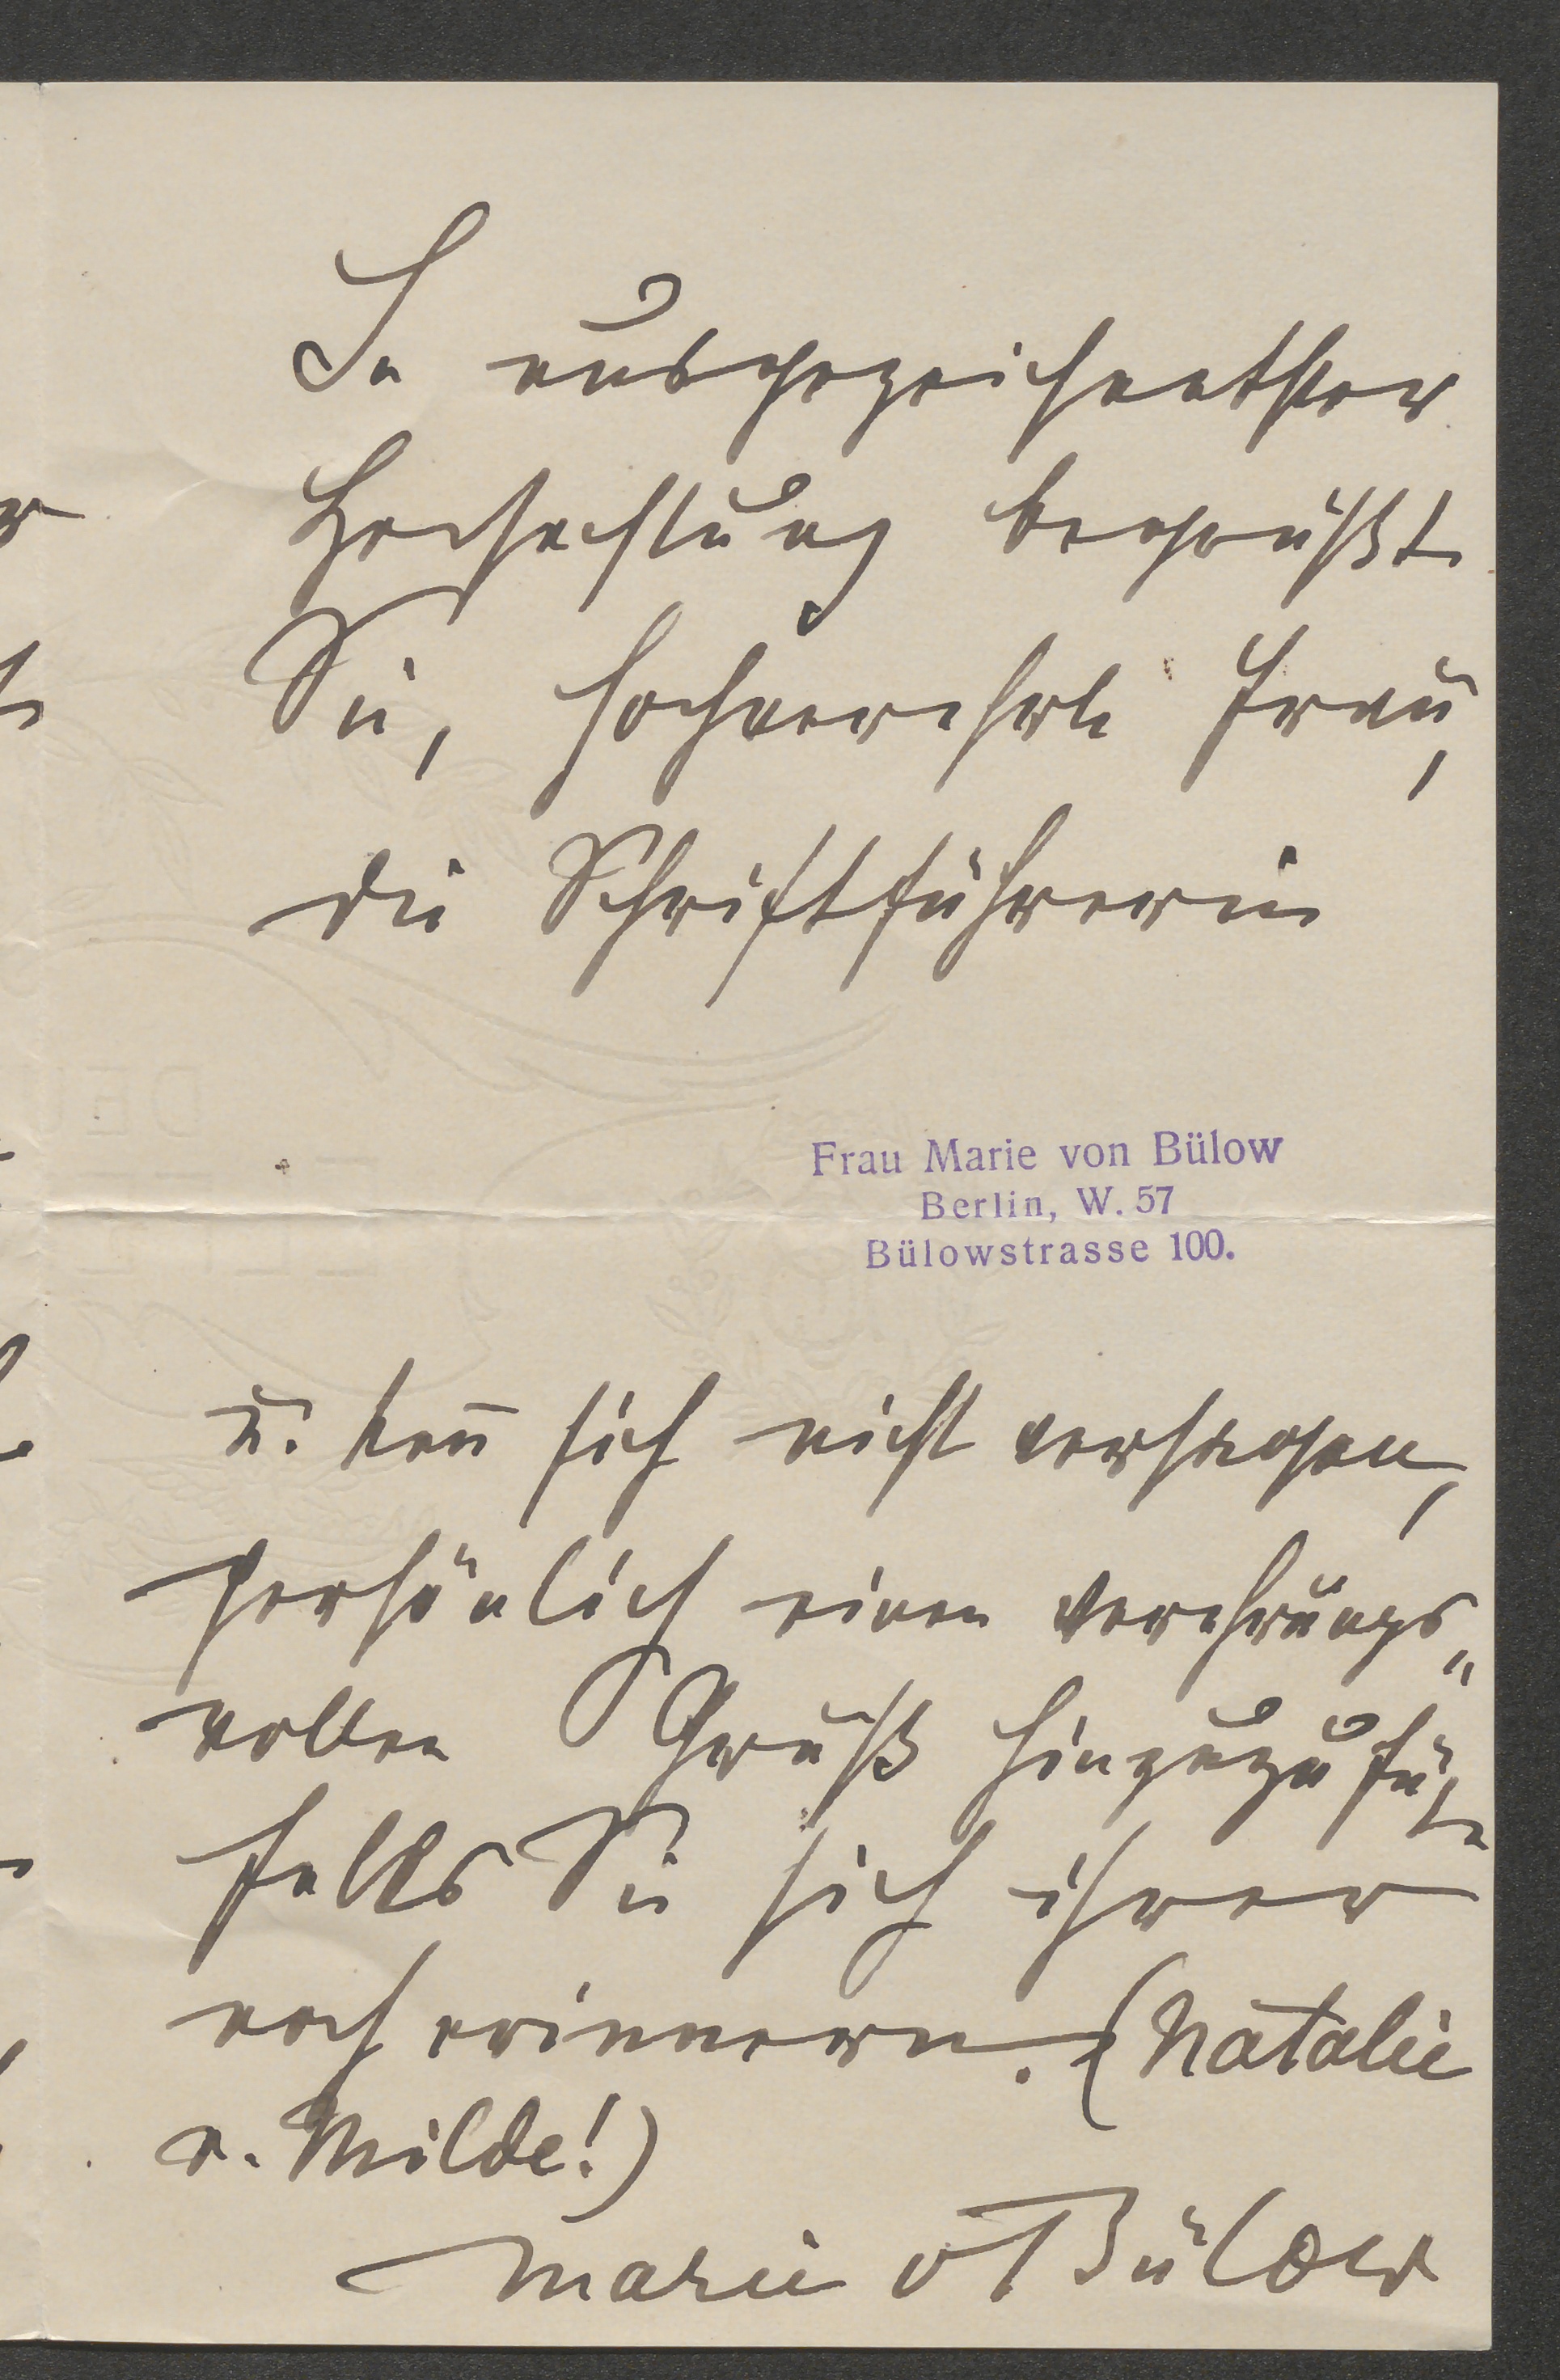 In ausgezeichnetster
Hochachtung begrüßt
Sie, hochverehrte Frau,
die Schriftführerin
Frau Marie von Bülow
Berlin, W. 57
Bülowstrasse 100.
u. kan̅ sich nicht versagen,
persönlich einen verehrungs„
vollen Gruß hinzuzufügen
falls Sie sich ihrer
noch erinnern. (Natalie
v. Milde!)
Marie v Bülow